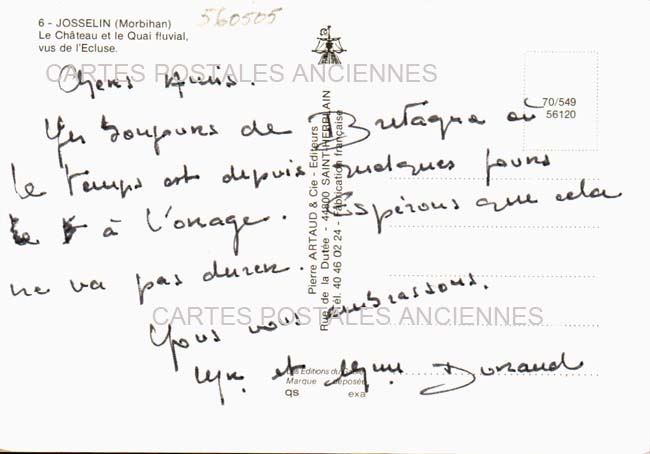 6 - JOSSELIN (Morbihan)
Le Château et le Quai fluvial,
vus de l'Ecluse.
560505
CARTES POSTALES ANCIENNES
70/549
56120
Chers Amis.
toujours de Bretagne où
le temps est depuis quelques jours
à l'orage. Espérons que cela
ne va pas durer.
vous embrassons.
et Durand
CARTES POSTALES ANCIENNES
Pierre ARTAUD & Cie - Editeurs
Rue de la Dutée - 44800 SAINT-HERBLAIN
Tél. 40 46 02 24 - Fabrication française
Les Editions du
Marque déposée
qs exa